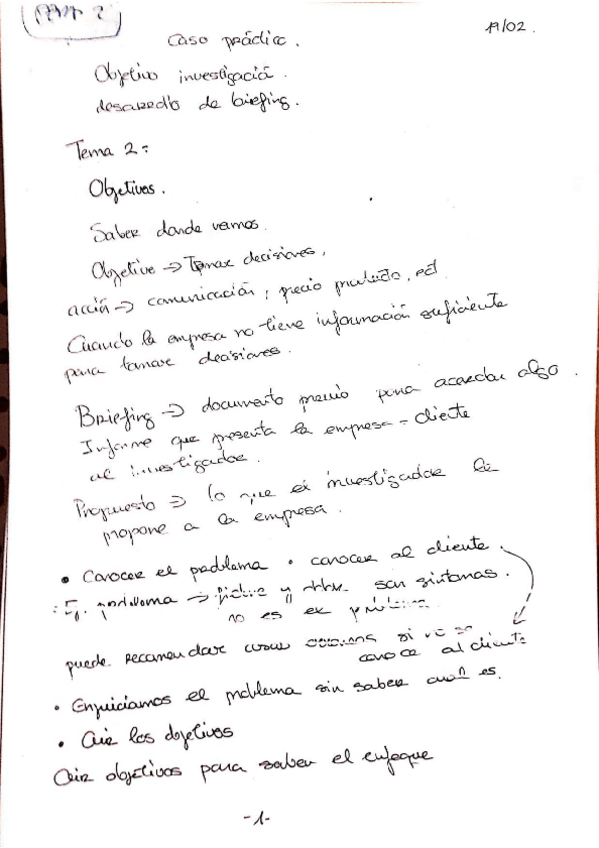 19/02.
Caso práctico.
Objetivo investigació.
desarrollo de briefing.
Tema 2:
Objetivos.
Saber donde vamos.
Objetivo → Tomar decisiones,
acción → comunicación, precio producto,
Cuando la empresa no tiene información suficiente
para tomar decisiones.
Briefing → documento previo para acordar algo.
Informe que presenta la empresa - cliente
al investigador.
Propuesto → lo que el investigador le
propone a la empresa.
• Conocer el problema • conocer al cliente.
problema → y son síntomas.
no es el
puede recomendar cosas si no se
conoce al cliente
• Enjuiciamos el problema sin saber cual es.
• los objetivos
objetivos para saber el enfoque
-1-